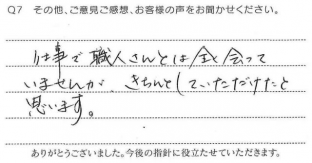 Q7 その他、ご意見ご感想、お客様の声をお聞かせください。
仕事で職人さんとは全く会って
いませんが、きちんとしていただけたと
思います。
ありがとうございました。今後の指針に役立たせていただきます。